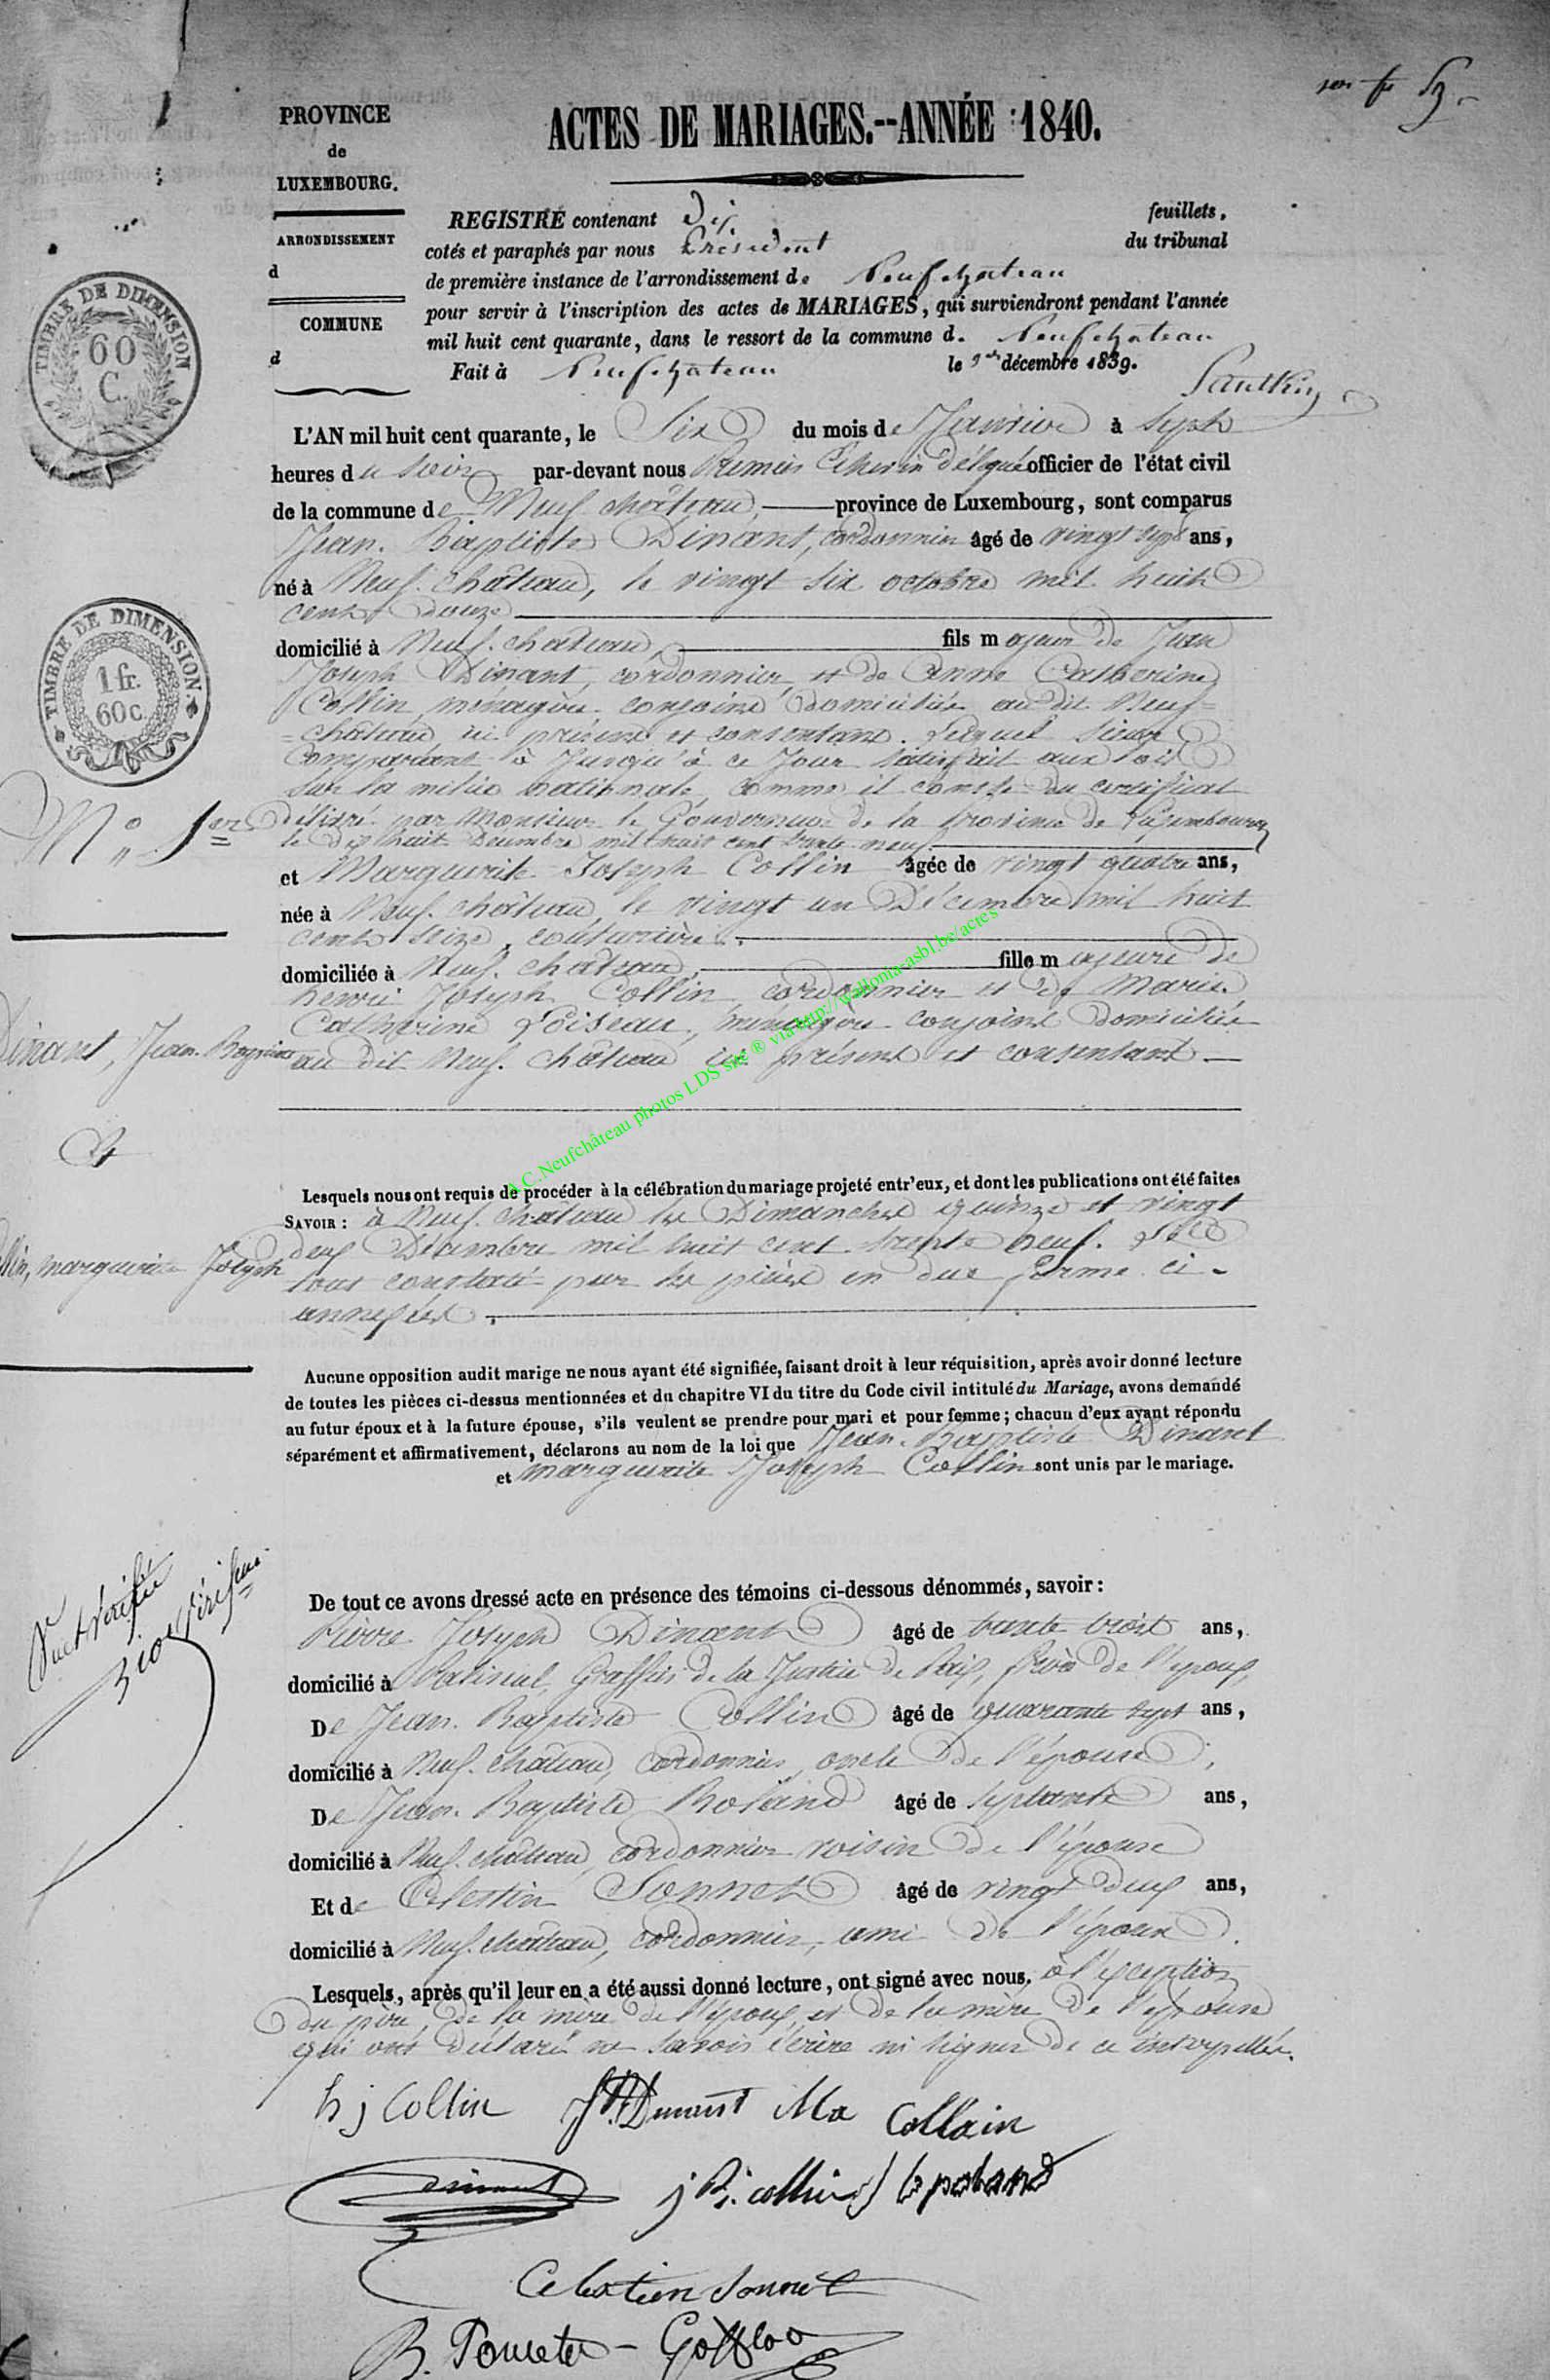 PROVINCE
de
LUXEMBOURG.
ARRONDISSEMENT
d
COMMUNE
d
ACTES DE MARIAGES.--ANNÉE 1840.
REGISTRE contenant Dix feuillets,
cotés et paraphés par nous Président du tribunal
de première instance de l'arrondissement de Neufchateau
pour servir à l'inscription des actes de MARIAGES, qui surviendront pendant l'année
mil huit cent quarante, dans le ressort de la commune d. Neufchateau
Fait à Neufchateau le décembre 1839.
TIMBRE DE DIMENSION
60
C.
L'AN mil huit cent quarante, le Six du mois de Janvier à Sept
heures du soir par-devant nous Premier Echevin délégué officier de l'état civil
de la commune de Neuf château, province de Luxembourg, sont comparus
Jean. Baptiste Dinant, cordonnier âgé de vingt sept ans,
né à Neuf. château, le vingt six octobre mil huit
cent douze
domicilié à Neuf. château, fils majeur de Jean
Joseph Dinant, cordonnier, et de Anne Catherine
Collin, ménagère, conjoins domiciliés au dit Neuf=
=château ici présens et consentans. Lequel Sieur
Comparant à Jusqu'à ce Jour satisfait aux lois
sur la milice nationale, comme il conste du certificat
délivré par Monsieur le Gouverneur de la Province de Luxembourg
le dix huit Décembre mil huit cent trente neuf.
TIMBRE DE DIMENSION
1 fr.
60 c
N° 1er
et Marguerite Joseph Collin âgée de vingt quatre ans,
née à Neuf. château, le vingt un Décembre mil huit
cent seize, couturière.
domiciliée à Neuf. château, fille majeure de
henri Joseph Collin, cordonnier et de Marie
Catherine Loiseau, ménagère conjoins domiciliés
au dit Neuf. château ici présens et consentans
Dinant, Jean. Baptiste
&
Collin, marguerite Joseph
A.C.Neufchâteau photos LDS site ® via http://wallonia-asbl.be/actes
Lesquels nous ont requis de procéder à la célébration du mariage projeté entr'eux, et dont les publications ont été faites
SAVOIR : à Neuf. château les Dimanches quinze et vingt
deux Décembre mil huit cent trente neuf.
tout constaté par les pièces en due forme ci-
annexées.
Aucune opposition audit marige ne nous ayant été signifiée, faisant droit à leur réquisition, après avoir donné lecture
de toutes les pièces ci-dessus mentionnées et du chapitre VI du titre du Code civil intitulé du Mariage, avons demandé
au futur époux et à la future épouse, s'ils veulent se prendre pour mari et pour femme ; chacun d'eux ayant répondu
séparément et affirmativement, déclarons au nom de la loi que Jean. Baptiste Dinant
et marguerite Joseph Collin sont unis par le mariage.
De tout ce avons dressé acte en présence des témoins ci-dessous dénommés, savoir :
Pierre Joseph Dinant âgé de trente trois ans,
domicilié à Paliseul, Greffier de la Justice de Paix, frère de l'époux,
De Jean. Baptiste Collin âgé de quarante sept ans,
domicilié à Neuf. château, cordonnier, oncle de l'épouse,
De Jean. Baptiste Roland âgé de septante ans,
domicilié à Neuf. château, cordonnier voisin de l'épouse
Et de Celestin Sonnet âgé de vingt deux ans,
domicilié à Neuf. château, cordonnier, ami de l'époux.
Lesquels, après qu'il leur en a été aussi donné lecture, ont signé avec nous, à l'exception
du père, de la mère de l'époux, et de la mère de l'épouse
qui ont déclaré ne savoir écrire ni signer de ce interpellés.
h j Collin J B Dinant Ma Collain
Dinant j B. collin j b roland
Celestien Sonnet